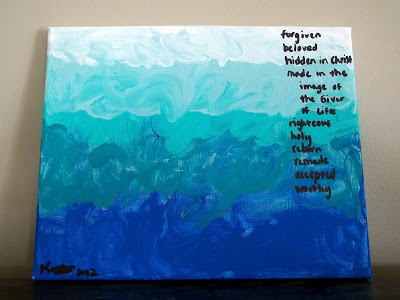 forgiven
beloved
hidden in Christ
made in the
image of
the Giver
of Life
righteous
holy
reborn
remade
accepted
worthy
2012